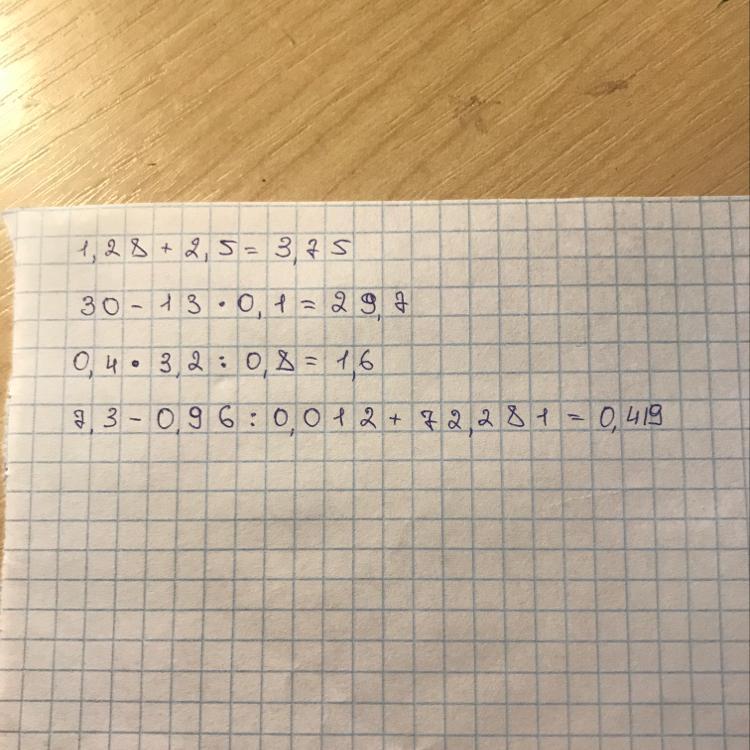 1,28 + 2,5 = 3,75
30 - 13 · 0,1 = 29,7
0,4 · 3,2 : 0,8 = 1,6
7,3 - 0,96 : 0,012 + 72,281 = 0,419